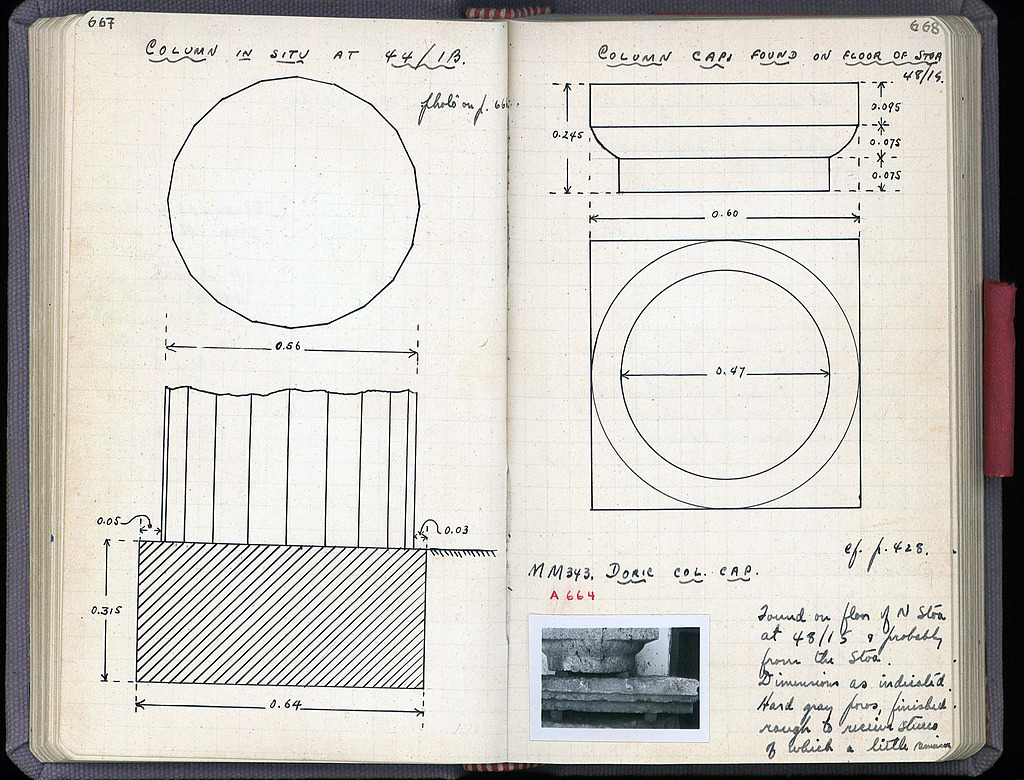 667
COLUMN IN SITU AT 44/1B.
photo on p. 666.
0.56
0.05
0.03
0.315
0.64
668
COLUMN CAP, FOUND ON FLOOR OF STOA
48/15.
0.245
0.095
0.075
0.075
0.60
0.47
cf. p. 428.
MM343. DORIC COL. CAP.
A 664
Found on floor of N Stoa
at 48/15 & probably
from the Stoa.
Dimensions as indicated.
Hard gray poros, finished
rough to receive stucco
of which a little remains